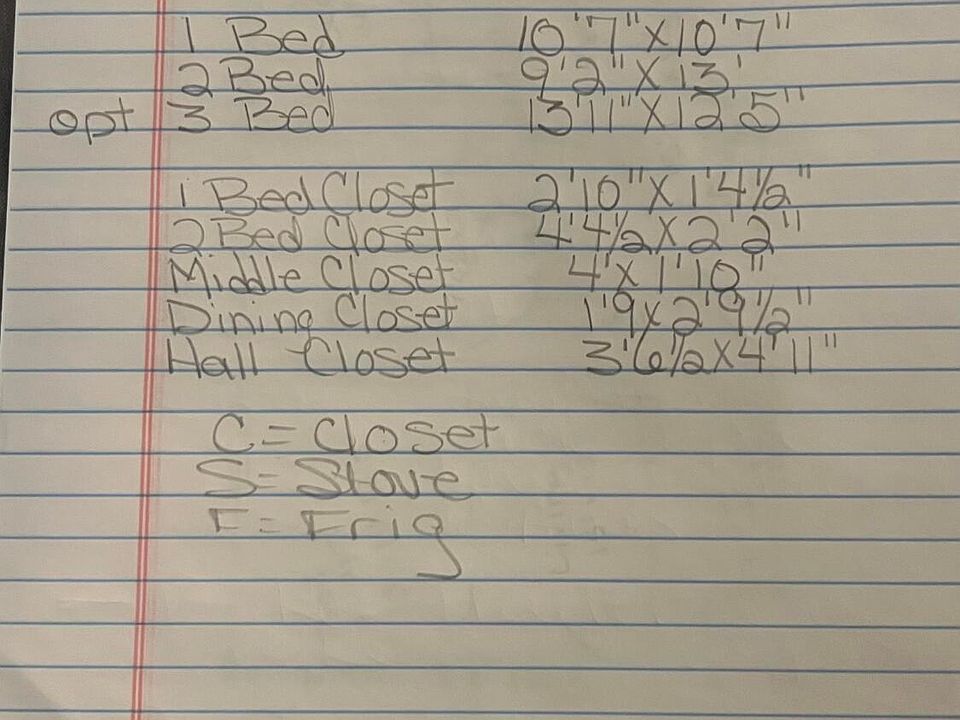 1 Bed 10'7"X10'7"
2 Bed 9'2"X13'
opt 3 Bed 13'11"X12'5"
1 Bed Closet 2'10"X1'4½"
2 Bed Closet 4'4½X2'2"
Middle Closet 4'X1'10"
Dining Closet 1'9X2'9½"
Hall Closet 3'6½X4'11"
C=Closet
S=Stove
F=Frig